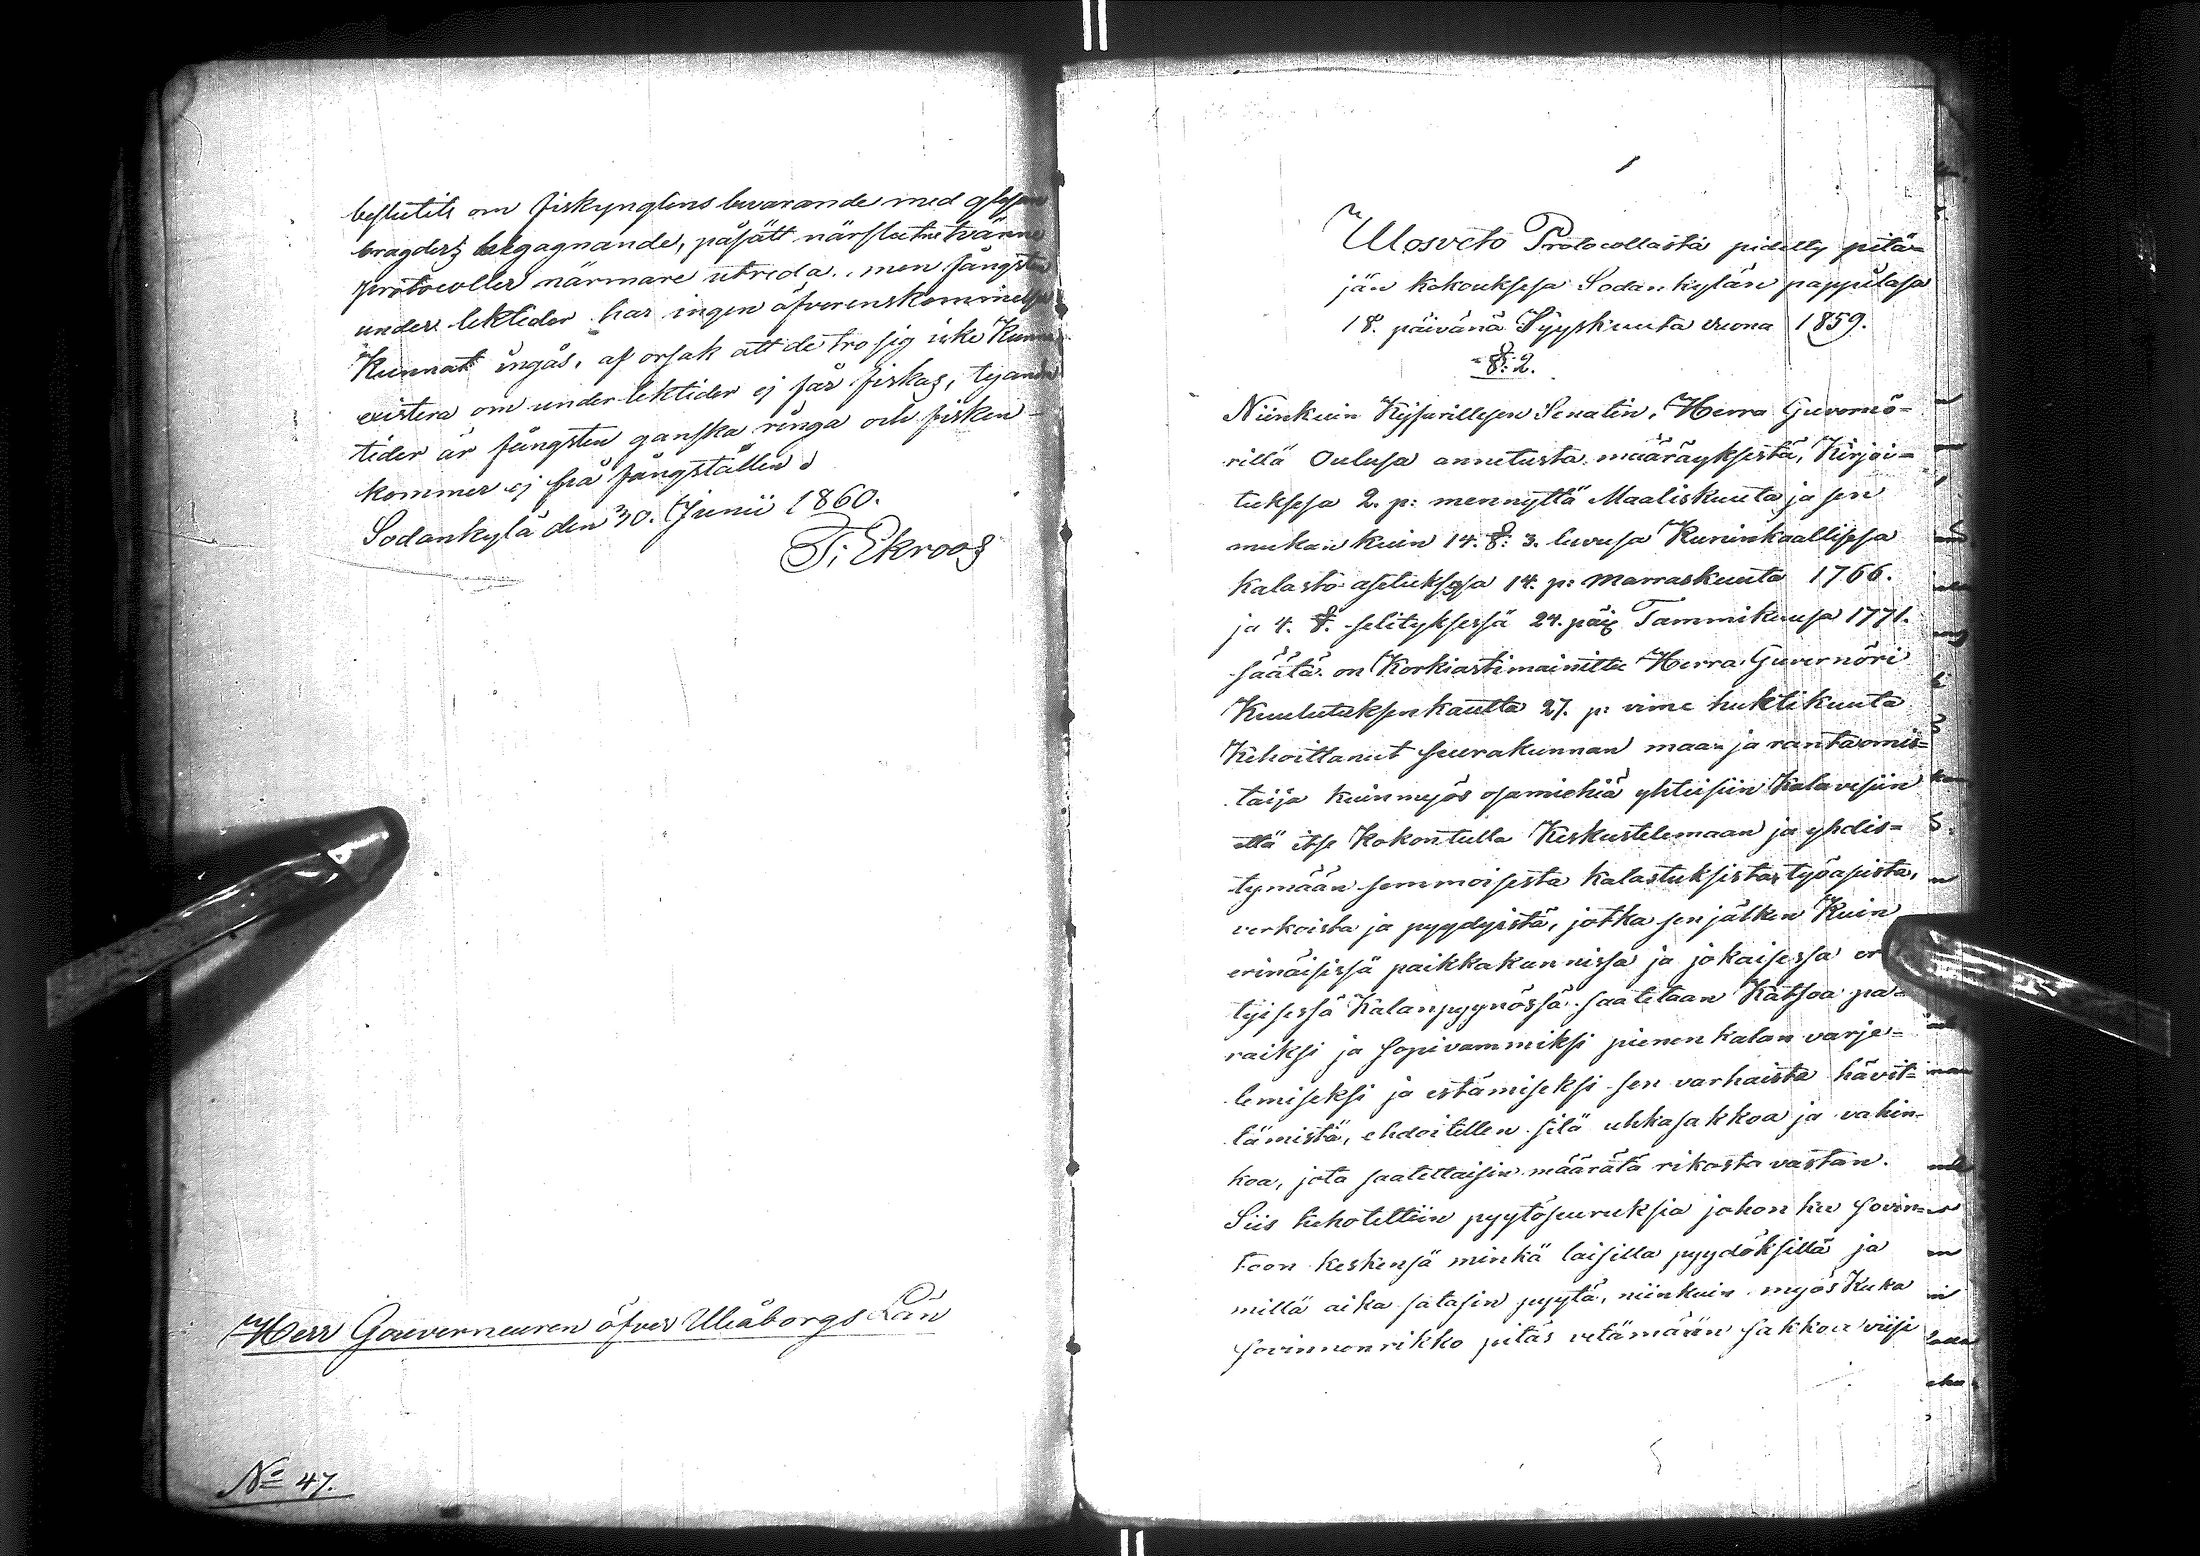 beslutits om fiskynglens bevarande med
bragders begagnande, påsätt närslutne tvänne
protocoller närmare utreda. men fångsten
under lektider har ingen öfverenskommelse
Kunnat ingås, af orsak att de tro sig icke Kunna
existera om under lektider ej får fiskas, ty andra
tider är fångsten ganska ringa och fisken
kommer ej frå fångställen.
Sodankylä den 30. Junii 1860.
T. Ekroos
Herr Gouverneuren öfver Uleåborgs Län
No 47.
Ulosveto Protocollasta pidetty pitä=
jän kokouksesa Sodankylän pappilasa
18. päivänä Syyskuuta vuona 1859.
§. 2.
Niinkuin Kejsarillisen Senatin, Herra Guvernö=
rillä Oulusa annetusta määräyksestä, Kirjoi=
tuksesa 2. p: mennyttä Maaliskuuta ja sen
mukan kuin 14. §: 3. luvusa Kuninkaallisesa
kalasto asetuksesa 14. p: Marraskuuta 1766.
ja 4. §. selityksessä 24. päiv Tammikuusa 1771.
säätä. on Korkiastimainittu Herra Guvernöri
Kuulutuksen kautta 27. p: viime huhtikuuta
Kehoittanut seurakunnan maa= ja rantaomis=
taija kuin myös osamiehiä yhteisiin Kalavesiin
että itse Kokontulla Keskustelemaan ja yhdis=
tymään semmoisesta kalastuksesta, työasista,
verkoista ja pyydyistä, jotka sen jälken Kuin
erinäisissä paikkakunnissa ja jokaisessa er
tyisessä Kalanpyynössä saatetaan Katsoa pa=
raiksi ja sopivammiksi pienen kalan varje=
lemiseksi ja estämiseksi sen varhaista hävit=
tämistä, ehdoitellen sitä uhkasakkoa ja vahin=
koa, jota saatettaisin määrätä rikosta vastan.
Siis kehotettiin pyytöseuruksia johon ku sovin=
toon keskensä minkä laisilla pyydöksillä ja
millä aika satasin pyytä, niinkuin myös Kuka
sovinnon rikko pitäs vetämään sakkoa viisi